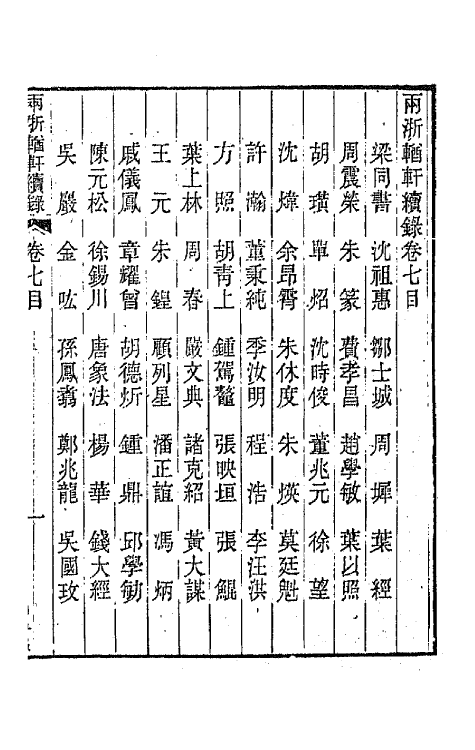 兩浙輶軒續錄卷七目
梁同書 沈祖惠 鄒士城 周墀 葉經
周震榮 朱篆 費孝昌 趙學敏 葉以照
胡璜 單炤 沈時俊 董兆元 徐望
沈煒 余昂霄 朱休度 朱煐 莫廷魁
許瀚 董秉純 季汝明 程浩 李汪淇
方照 胡靑上 鍾駕鼇 張映垣 張鯤
葉上林 周春 嚴文典 諸克紹 黃大謀
王元 朱鍠 顧列星 潘正誼 馮炳
戚儀鳳 章耀曾 胡德炘 鍾鼎 邱學勄
陳元松 徐錫川 唐象法 楊華 錢大經
吳嚴 金吰 孫鳳翥 鄭兆龍 吳國玫
兩浙輶軒續錄 卷七目 一